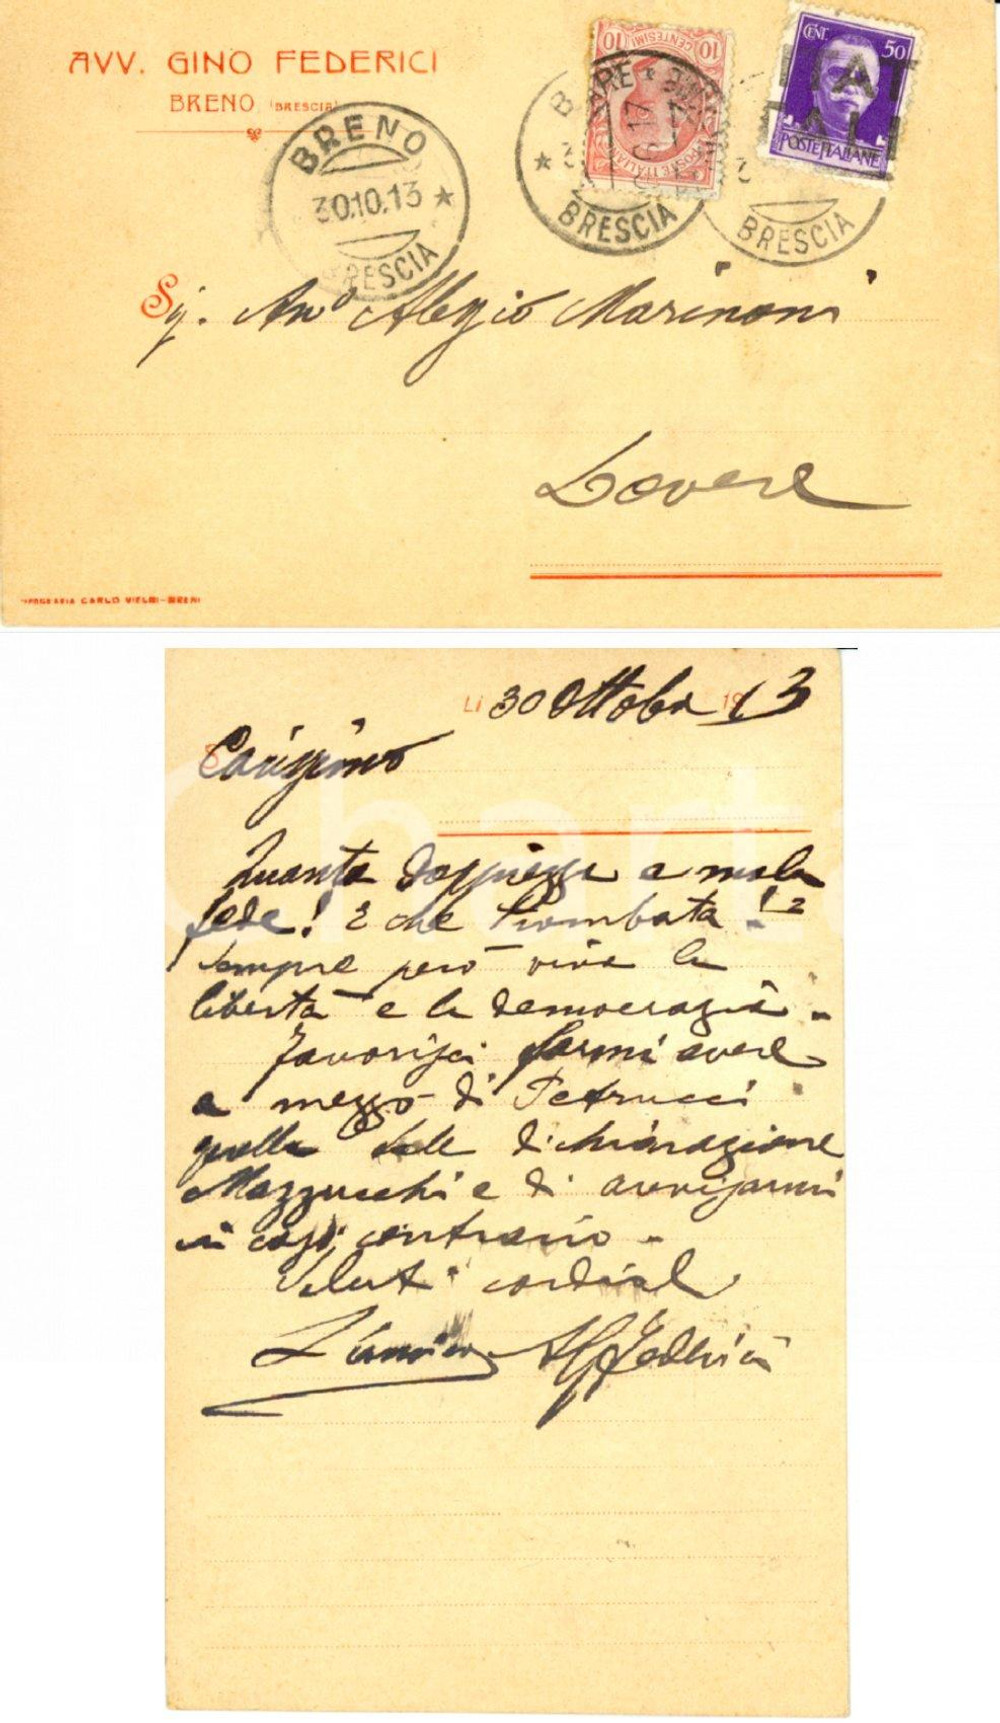 AVV. GINO FEDERICI
BRENO (BRESCIA)
BRENO
30.10.13
BRESCIA
10 CENTESIMI 10
POSTE ITALIANE
BRESCIA
CENT. 50
POSTE ITALIANE
BRESCIA
Sig. Avvo Alessio Marinoni
Lovere
TIPOGRAFIA CARLO VIELMI-BRENO
Li 30 Ottobre 1913
Carissimo
Quanta doppiezza e mala
fede! E che trombata!!
Sempre però viva la
libertà e la democrazia.
Favorisci farmi avere
a mezzo di Petrucci
quella dichiarazione
Mazzucchi e di avvisarmi
in caso contrario.
Saluti cordiali
Federici